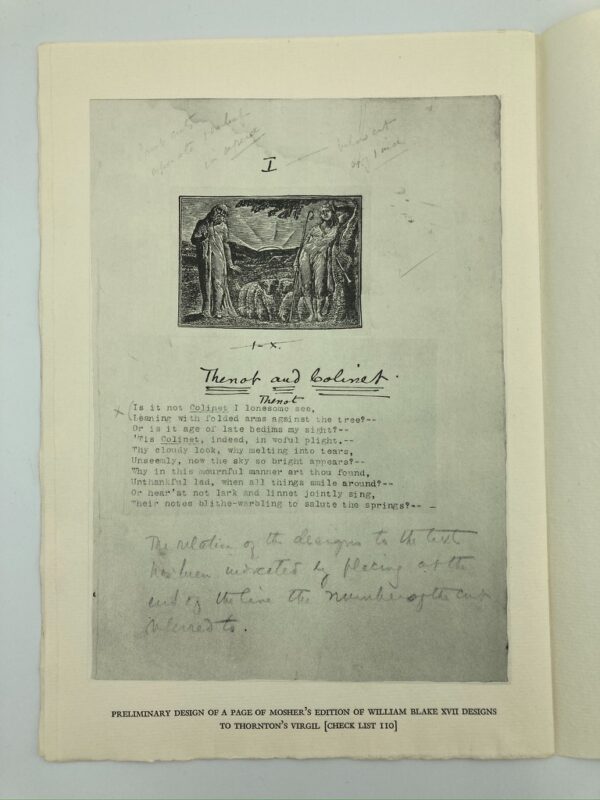 below cut
of 1 inch
I
I-X.
Thenot and Colinet.
Thenot
x (Is it not Colinet I lonesome see,
Leaning with folded arms against the tree?--
Or is it age of late bedims my sight?--
'Tis Colinet, indeed, in woful plight.--
Thy cloudy look, why melting into tears,
Unseemly, now the sky so bright appears?--
Why in this mournful manner art thou found,
Unthankful lad, when all things smile around?--
Or hear'st not lark and linnet jointly sing,
Their notes blithe-warbling to salute the springs?-- -
The relation of the designs to the text
has been indicated by placing at the
end of the line the number of the cut
referred to.
PRELIMINARY DESIGN OF A PAGE OF MOSHER'S EDITION OF WILLIAM BLAKE XVII DESIGNS
TO THORNTON'S VIRGIL [CHECK LIST 110]